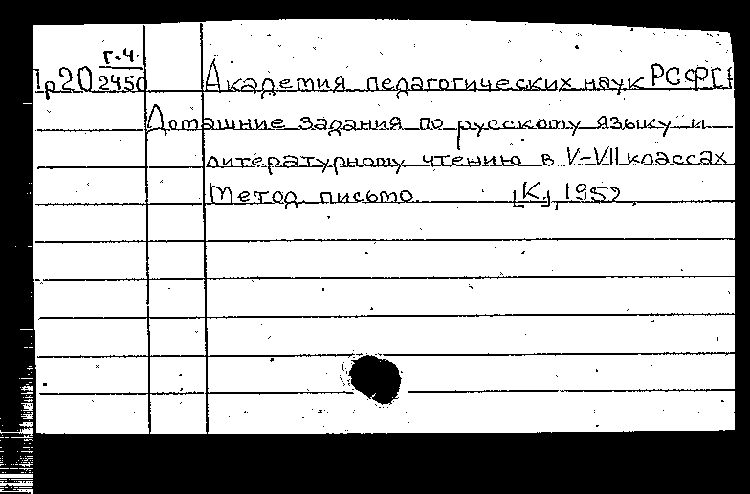 г.ч.
Пр20 2450 Академия педагогических наук РСФС
Домашние задания по русскому языку и
литературному чтению в V-VII классах
Метод. письмо. [К.], 1952.